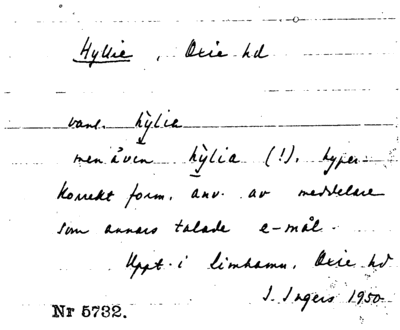 Hyllie, Oxie hd
vanl. hỳlia
men även hỳlia (!), hyper-
korrekt form, anv. av meddelare
som annars talade e-mål.
Uppt. i Limhamn, Oxie hd
I. Ingers 1950
Nr 5732.